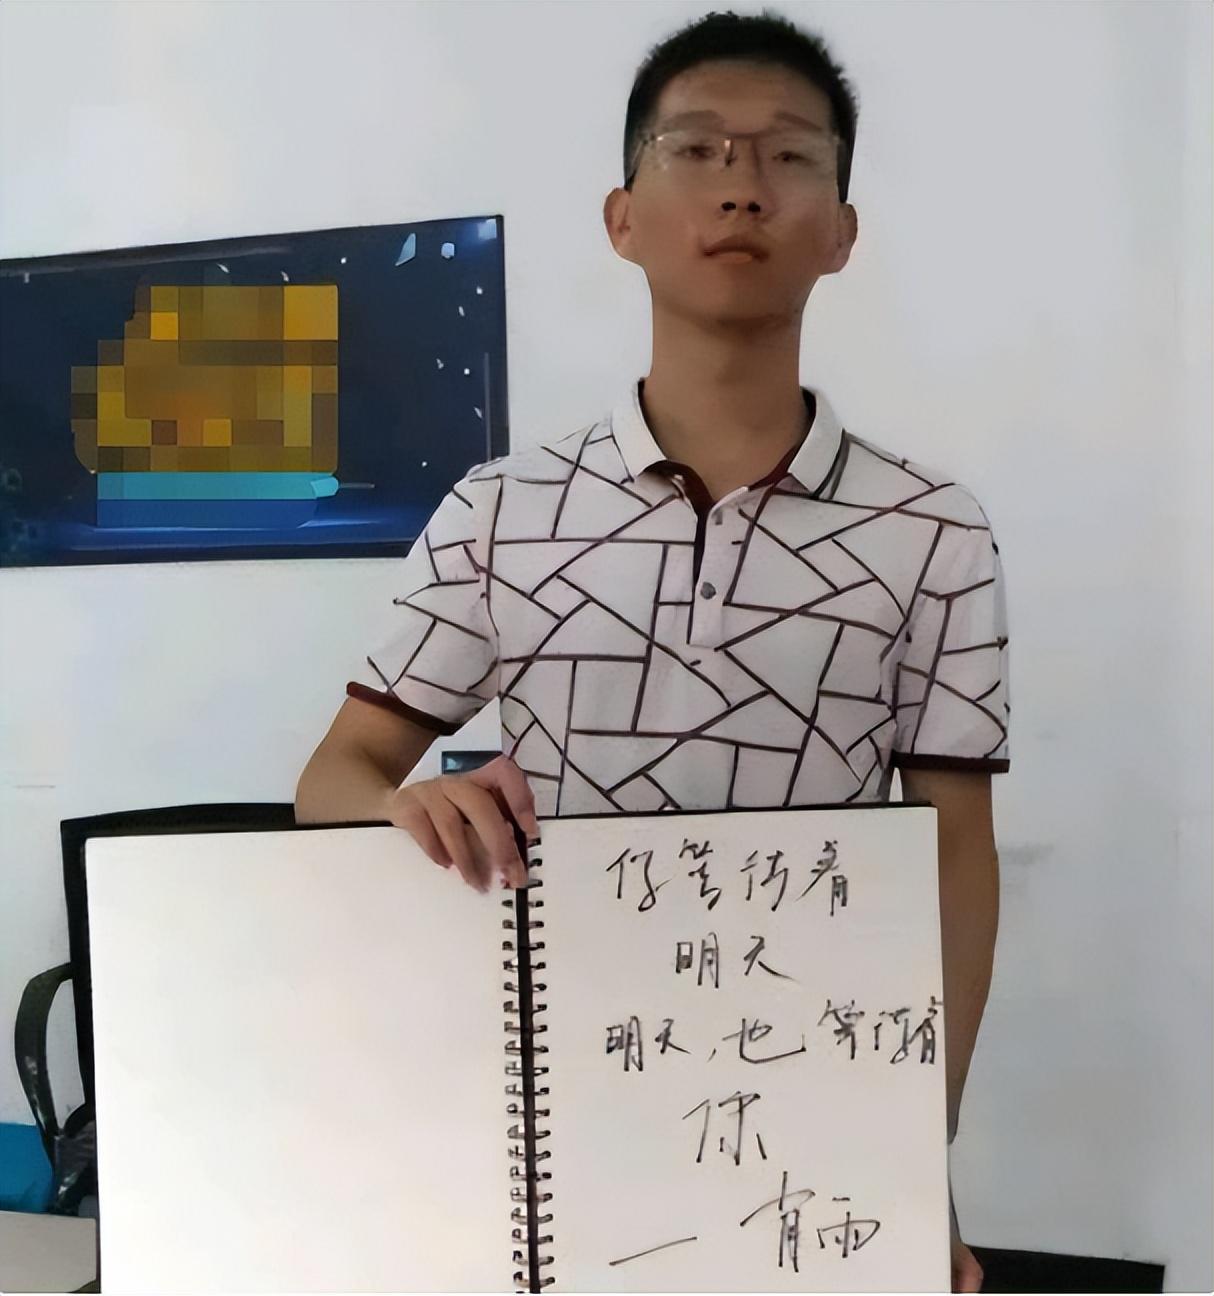 你等待着
明天
明天,也等待着
你